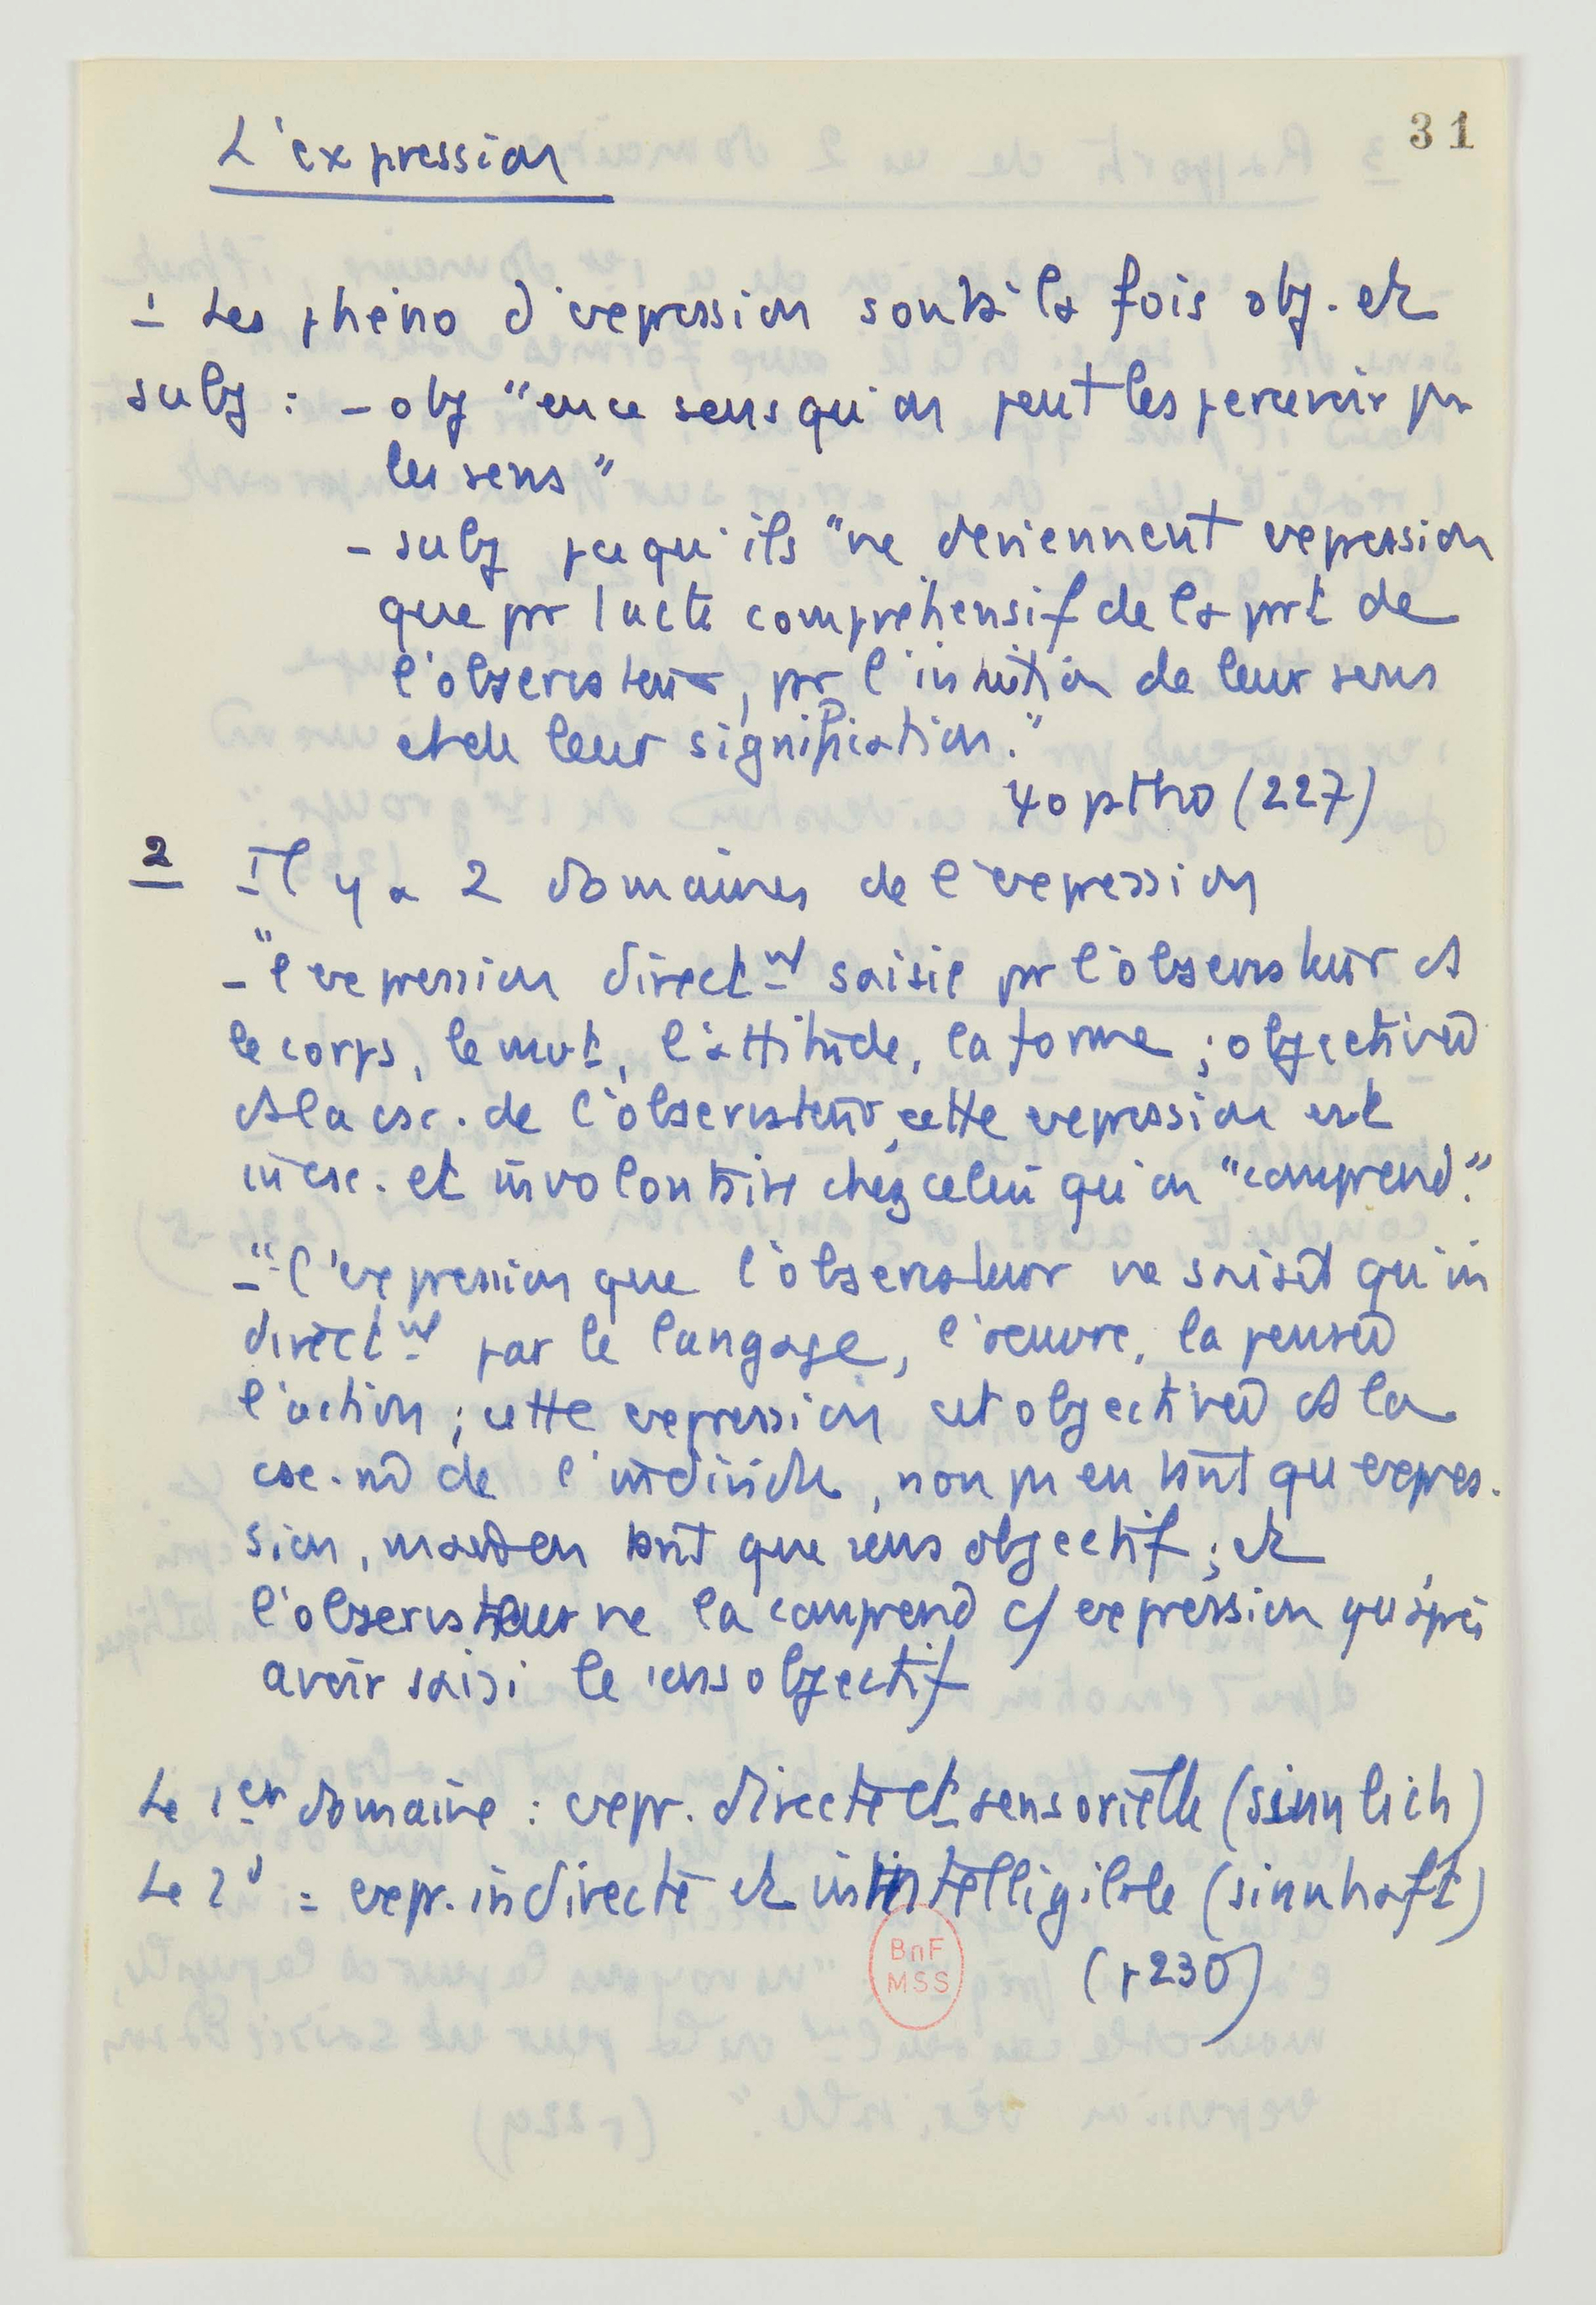 31
L'expression
1 Les phéno d'expression sont à la fois obj. et
subj : - obj "en ce sens qu'on peut les percevoir pr
les sens"
- subj pcequ'ils "ne deviennent expression
que pr l'acte compréhensif de la part de
l'observateur, pr l'intuition de leur sens
et de leur signification."
ψoptho (227)
2 Il y a 2 domaines de l'expression
- "l'expression directnt saisie pr l'observateur ds
le corps, le mvt, l'attitude, la forme ; objectivée
ds la csc. de l'observateur, cette expression est
incsc. et involontaire chez celui qu'on "comprend."
- "l'expression que l'observateur ne saisit qu'in
directnt par le langage, l'oeuvre, la pensée
l'action ; cette expression est objectivée ds la
csc. de l'individu, non pas en tant qu'expres-
sion, mais en tant que sens objectif ; et
l'observateur ne la comprend c/ expression qu'après
avoir saisi le sens objectif
Le 1er domaine : expr. directe et sensorielle (sinnlich)
Le 2d = expr. indirecte et intelligible (sinnhaft)
(p 230)
BnF
MSS